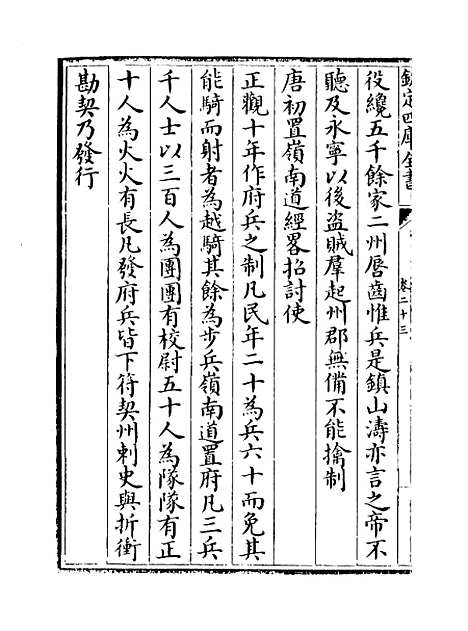 欽定四庫全書
卷二十三
役纔五千餘家二州唇齒惟兵是鎮山濤亦言之帝不
聽及永寧以後盜賊羣起州郡無備不能擒制
唐初置嶺南道經畧招討使
正觀十年作府兵之制凡民年二十為兵六十而免其
能騎而射者為越騎其餘為步兵嶺南道置府凡三兵
千人士以三百人為團團有校尉五十人為隊隊有正
十人為火火有長凡發府兵皆下符契州刺史與折衝
勘契乃發行